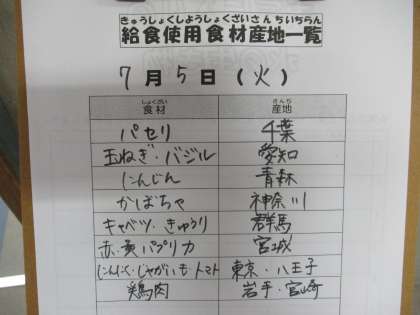 きゅうしょくしようしょくざいさんちいちらん
給食使用食材産地一覧
7月5日(火)
しょくざい さんち
食材 産地
パセリ 千葉
玉ねぎ・バジル 愛知
にんじん 青森
かぼちゃ 神奈川
キャベツ・きゅうり 群馬
赤・黄パプリカ 宮城
にんにく・じゃがいも・トマト 東京・八王子
鶏肉 岩手・宮崎